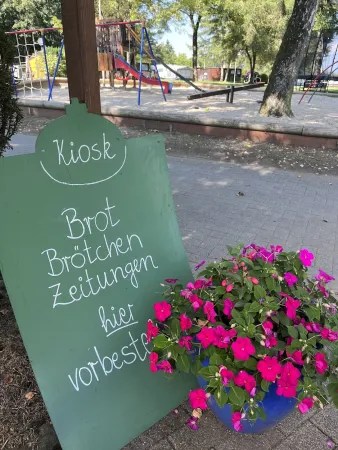 Kiosk
Brot
Brötchen
Zeitungen
hier
vorbeste